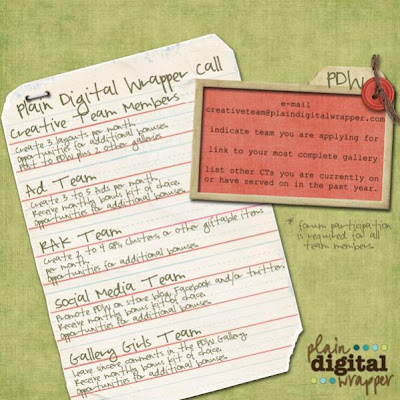 plain Digital Wrapper Call
Creative Team Members
Create 3 layouts per month
opportunities for additional bonuses
Post to PDW plus 2 other galleries
Ad Team
Create 3 to 5 Ads per month,
Receive monthly bonus kit of choice.
opportunities for additional bonuses
RAK Team
Create to 4 QPs, clusters, or other giftable items
per month
opportunities for additional bonuses
Social Media Team
Promote PDW on store blog, Facebook and/or twitter.
Receive monthly bonus kit of choice.
opportunities for additional bonuses.
Gallery Girls Team
Leave sincere comments in the PDW Gallery
Receive monthly bonus kit of choice.
opportunities for additional bonuses.
PDW
e-mail
creativeteam@plaindigitalwrapper.com
indicate team you are applying for
link to your most complete gallery
list other CTs you are currently on
or have served on in the past year.
* forum participation
is required for all
team members
plain
digital
wrapper